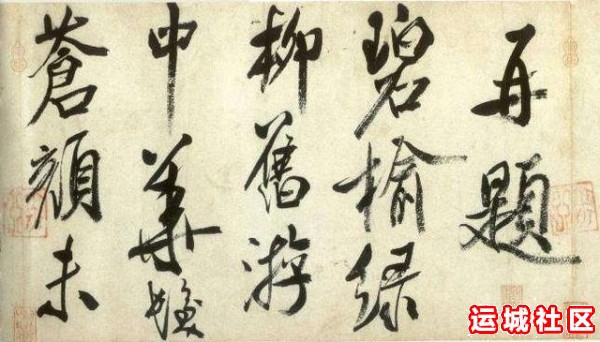 再題
碧榆綠
柳舊游
中華髮
蒼顏未
运城社区